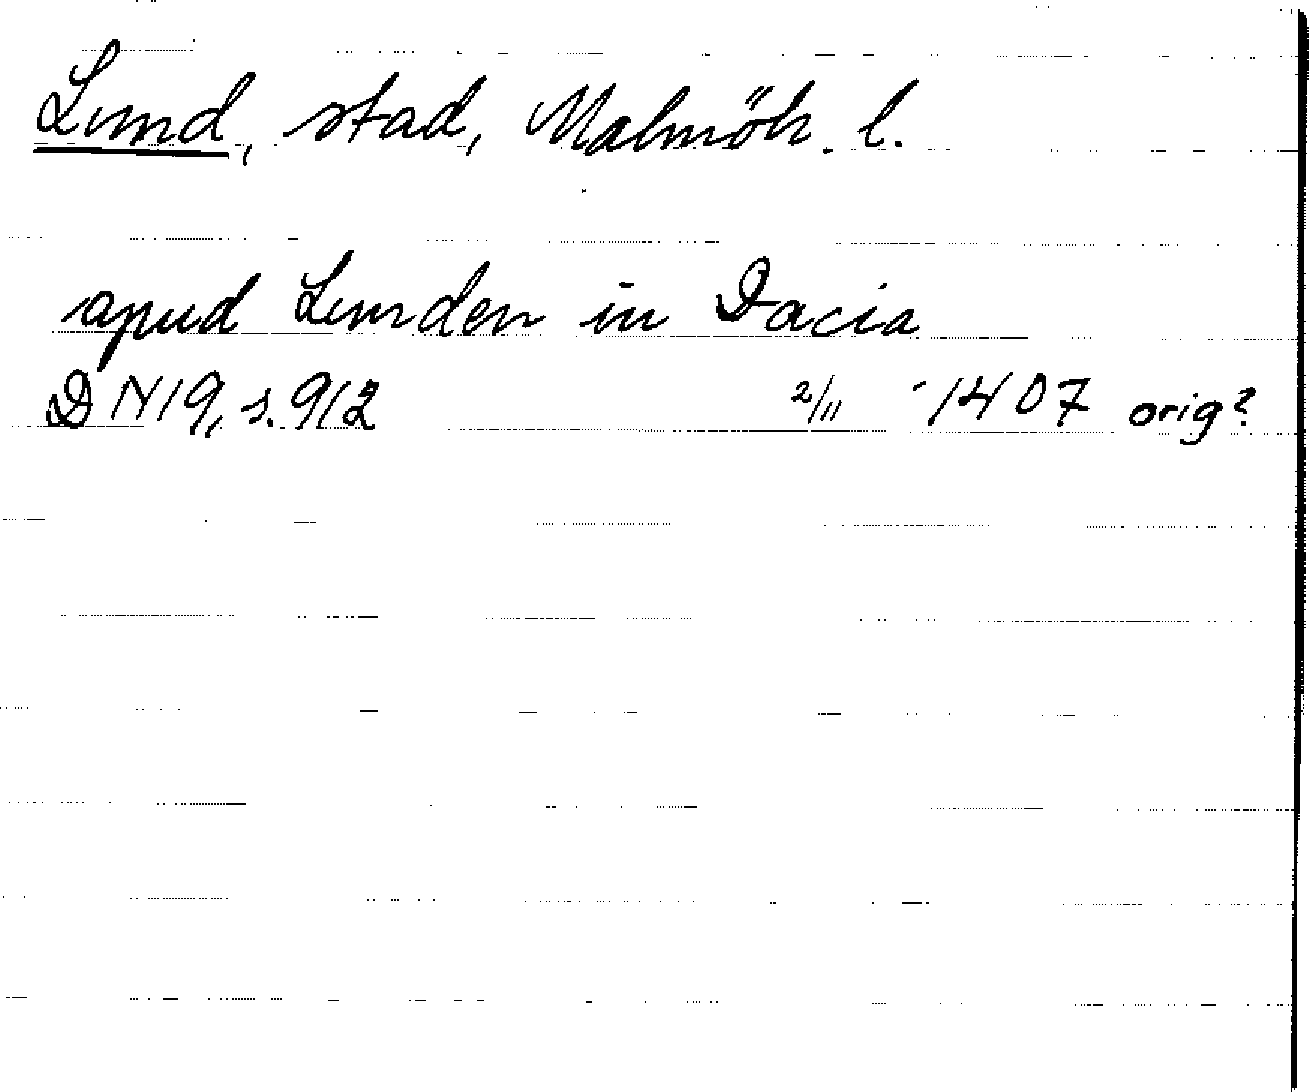 Lund, stad, Malmöh. l.
apud Lunden in Dacia
DN19, s. 912 2/11 1407 orig?